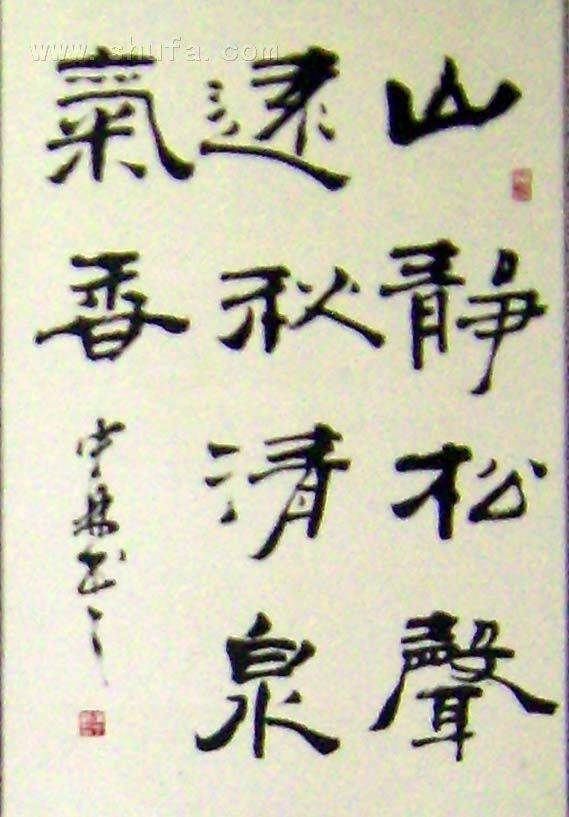 www.shufa.com
山静松聲
遠秋清泉
氣香
书